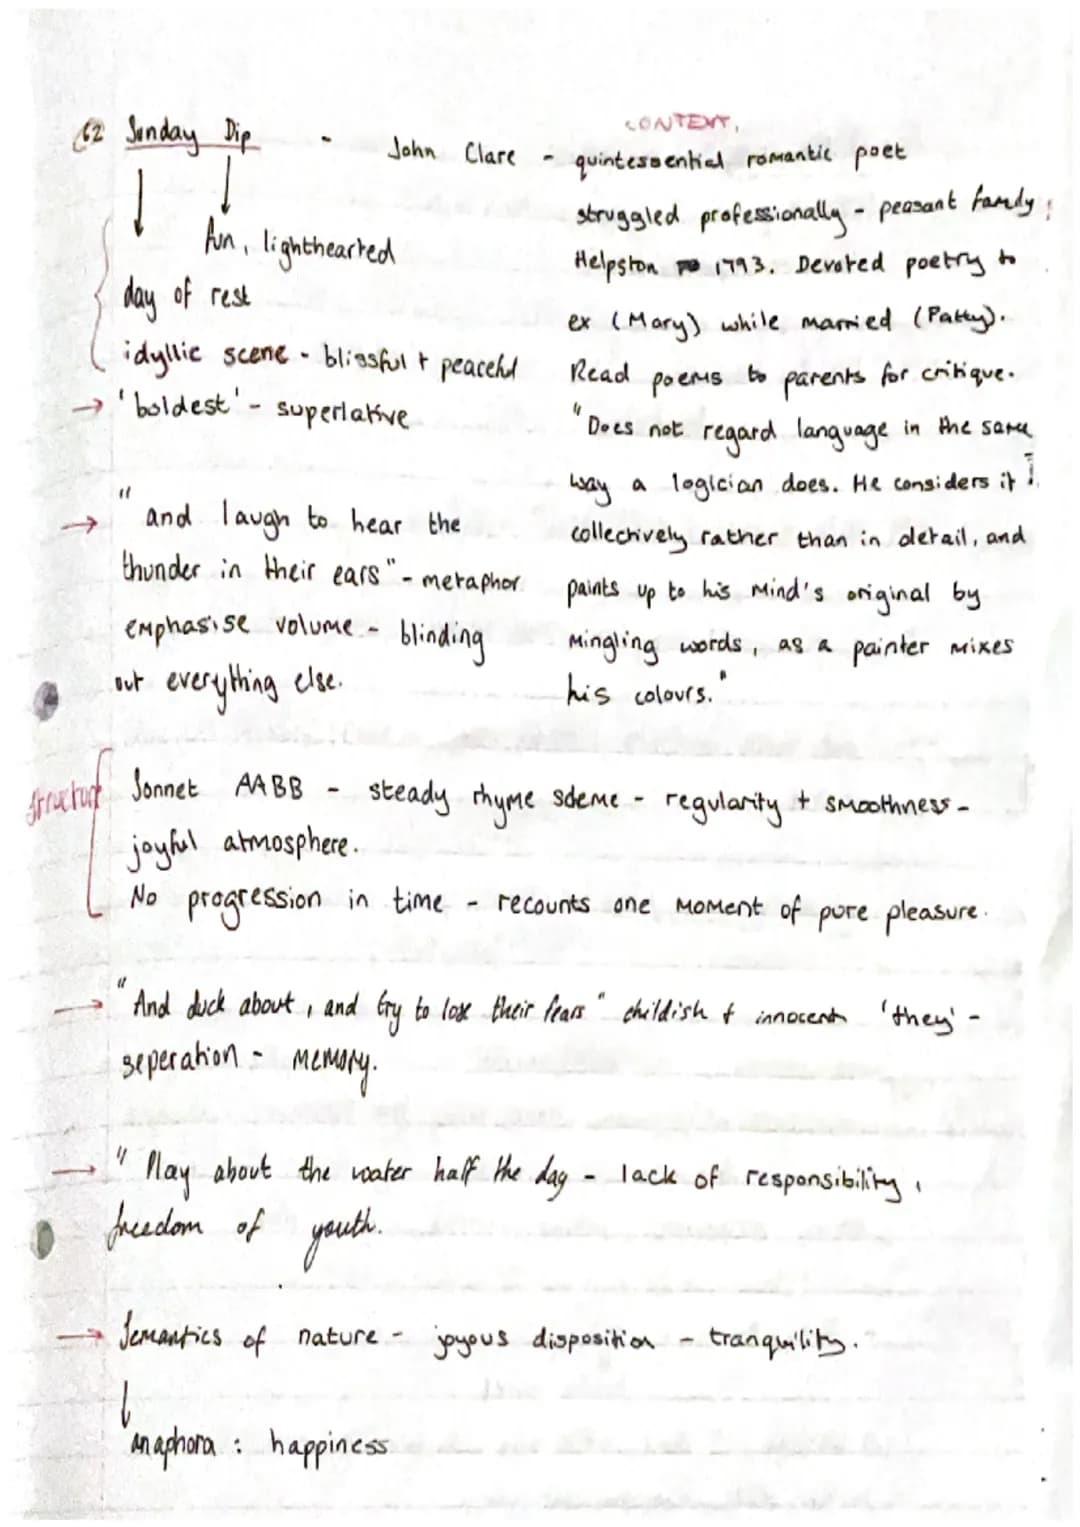 62 Sunday Dip - John Clare - quintessential romantic poet
CONTEXT.
struggled professionally - peasant family,
Helpston 1793. Devoted poetry to
ex (Mary) while married (Patty).
Read poems to parents for critique.
"Does not regard language in the same
way a logician does. He considers it
collectively rather than in detail, and
paints up to his mind's original by
mingling words, as a painter mixes
his colours."
fun, lighthearted
day of rest
idyllic scene - blissful + peaceful
→ 'boldest' - superlative
→ "and laugh to hear the
thunder in their ears" - metaphor
emphasise volume - blinding
out everything else.
Structure
Sonnet AABB - steady rhyme sdeme - regularity + smoothness -
joyful atmosphere.
No progression in time - recounts one moment of pure pleasure.
→ "And duck about, and try to lose their fears" childish + innocent 'they' -
seperation - memory.
→ "Play about the water half the day - lack of responsibility,
freedom of youth.
→ Semantics of nature - joyous disposition - tranquility.
anaphora : happiness